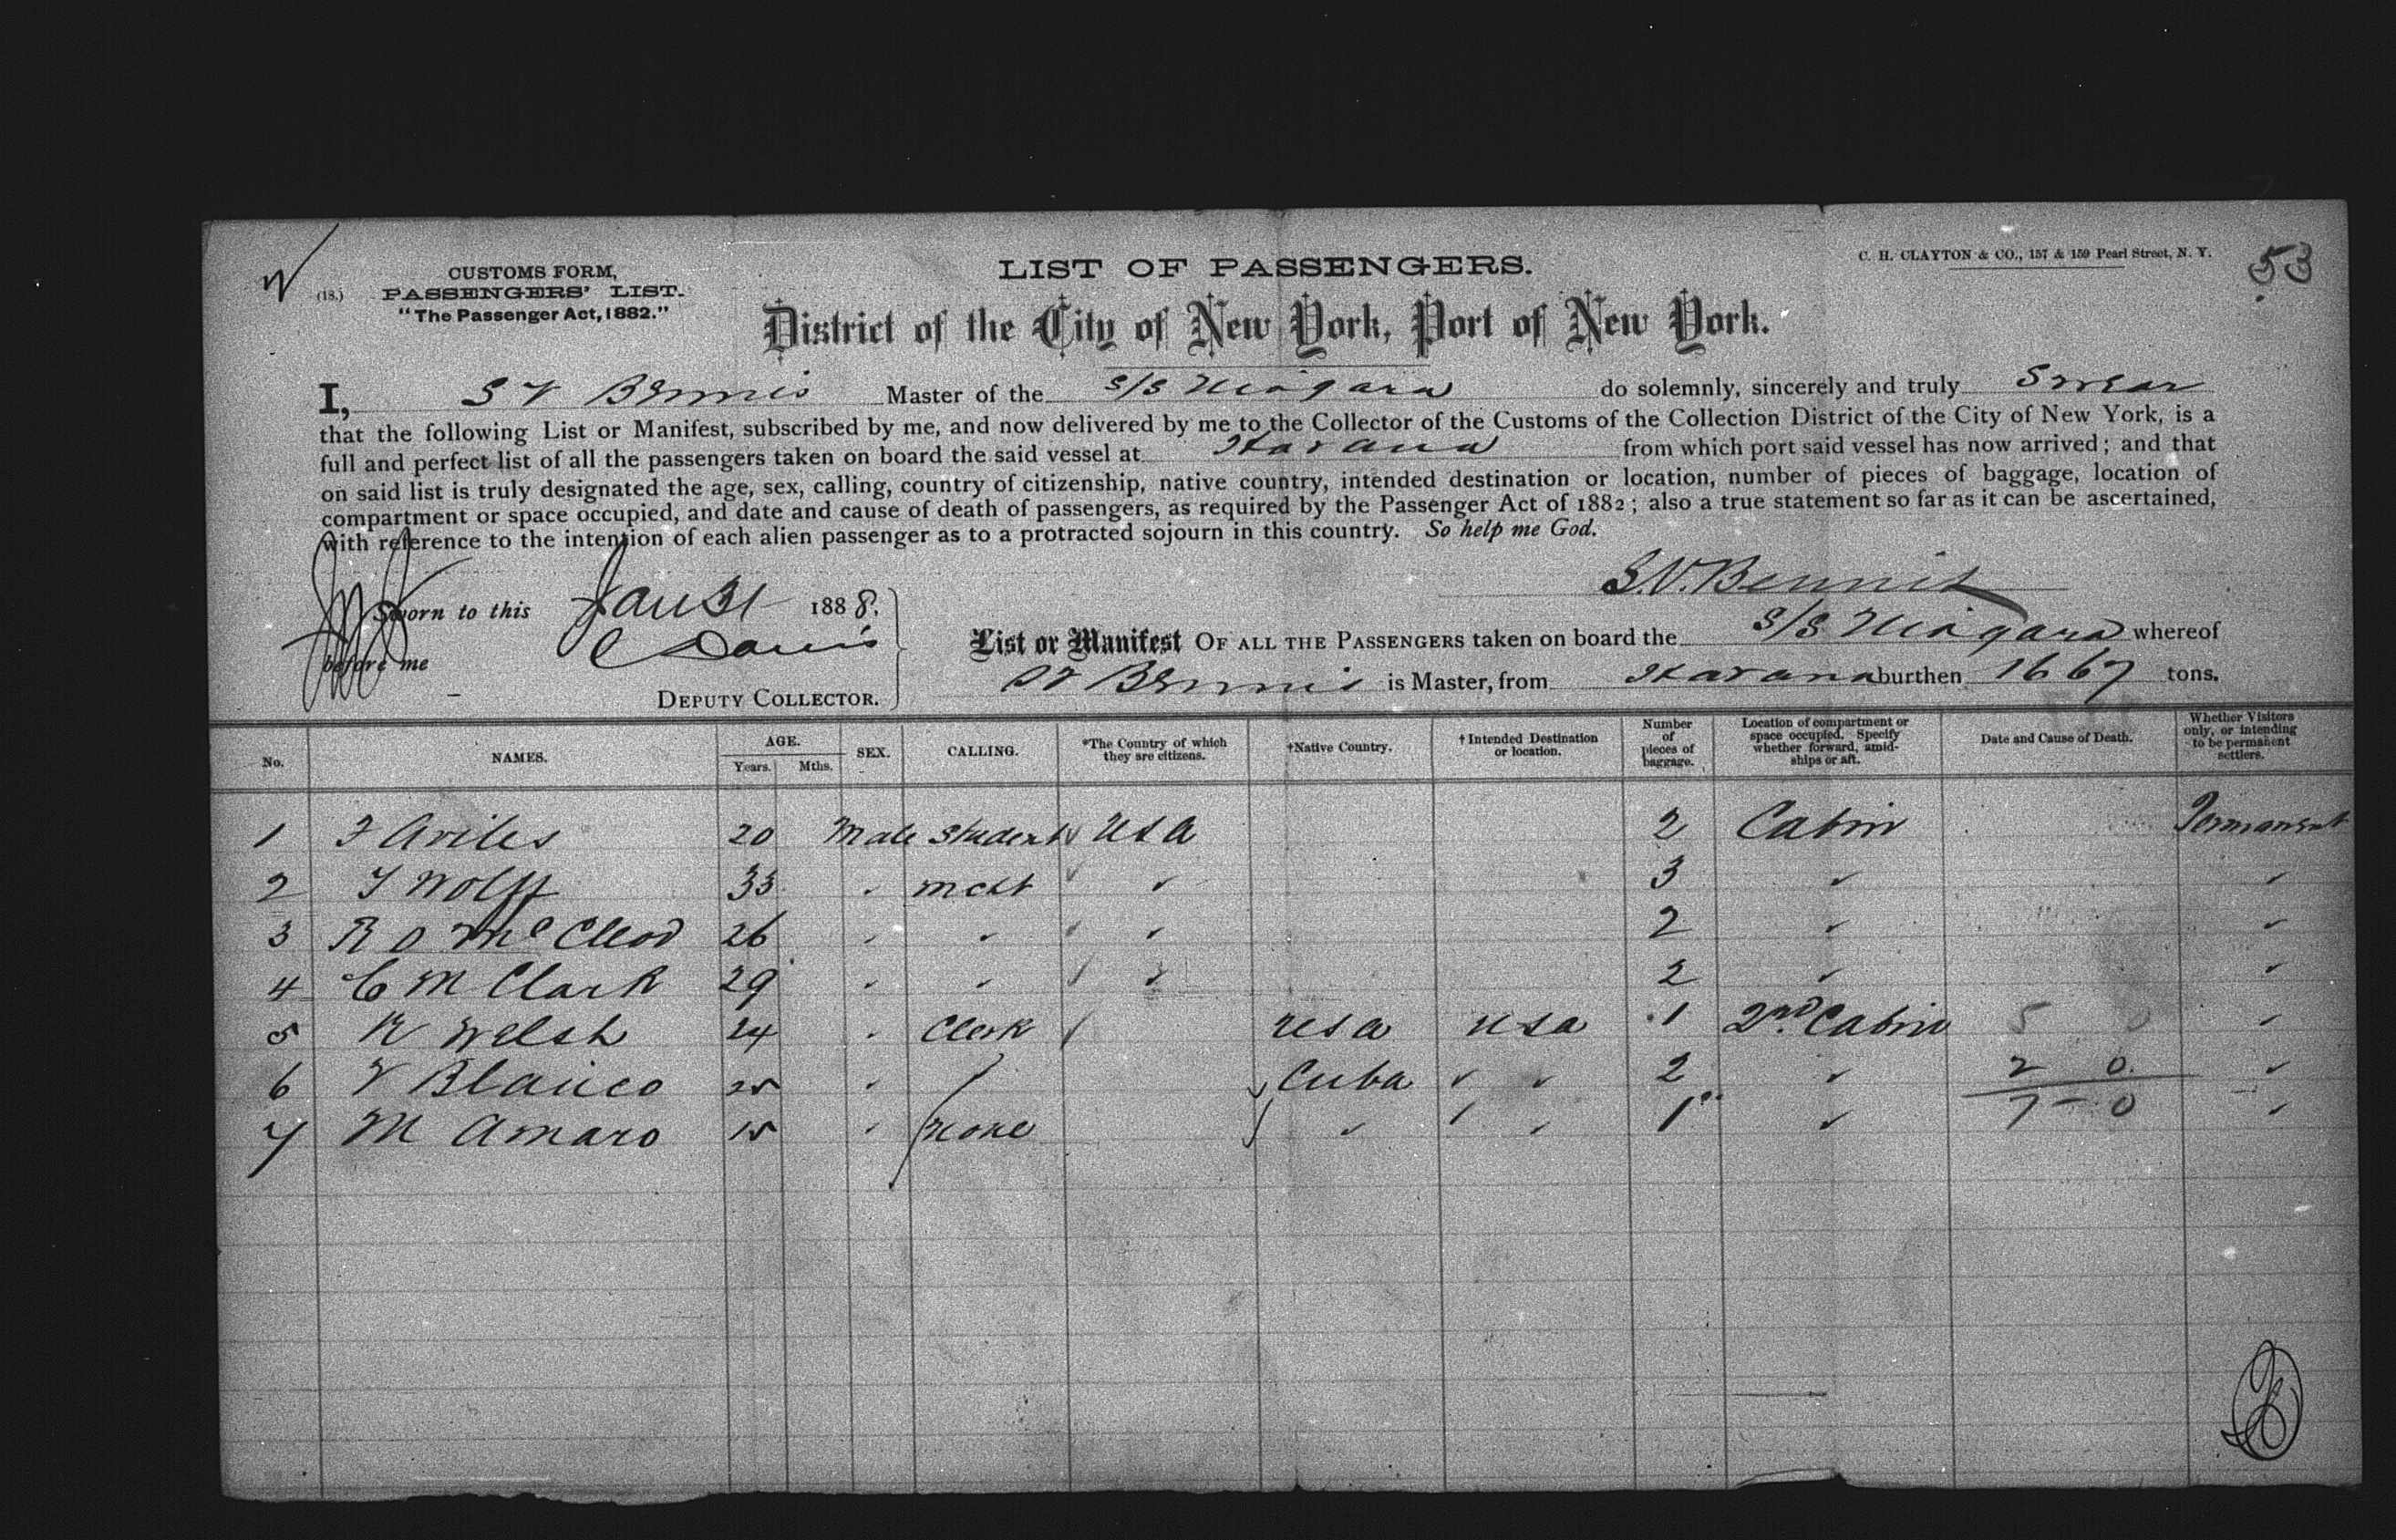 53
CUSTOMS FORM,
(13.) PASSENGERS' LIST.
"The Passenger Act, 1882."
LIST OF PASSENGERS.
C. H. CLAYTON & CO., 157 & 159 Pearl Street, N. Y.
District of the City of New York, Port of New York.
I, S V Bennis Master of the S/S Niagara do solemnly, sincerely and truly Swear
that the following List or Manifest, subscribed by me, and now delivered by me to the Collector of the Customs of the Collection District of the City of New York, is a
full and perfect list of all the passengers taken on board the said vessel at Havana from which port said vessel has now arrived; and that
on said list is truly designated the age, sex, calling, country of citizenship, native country, intended destination or location, number of pieces of baggage, location of
compartment or space occupied, and date and cause of death of passengers, as required by the Passenger Act of 1882; also a true statement so far as it can be ascertained,
with reference to the intention of each alien passenger as to a protracted sojourn in this country. So help me God.
S.V. Bennis
Sworn to this Jan 31 1888.
before me C Davis
DEPUTY COLLECTOR.
List or Manifest OF ALL THE PASSENGERS taken on board the S/S Niagara whereof
S V Bennis is Master, from Havana burthen 1667 tons.
No. NAMES. AGE. Years. Mths. SEX. CALLING. *The Country of which they are citizens. †Native Country. †Intended Destination or location. Number of pieces of baggage. Location of compartment or space occupied. Specify whether forward, amidships or aft. Date and Cause of Death. Whether Visitors only, or intending to be permanent settlers.
1 F Aviles 20 Male Student USA 2 Cabin Permanent
2 Wolff 33 " mcht " 3 " "
3 R O McCleod 26 " " " 2 " "
4 C M Clark 29 " " " 2 " "
5 R Welsh 24 " Clerk USA USA 1 2nd Cabin 5 0 "
6 V Blanco 25 " Cuba " " 2 " 2 0 "
7 M Amaro 15 " None " " 1 " 7-0 "